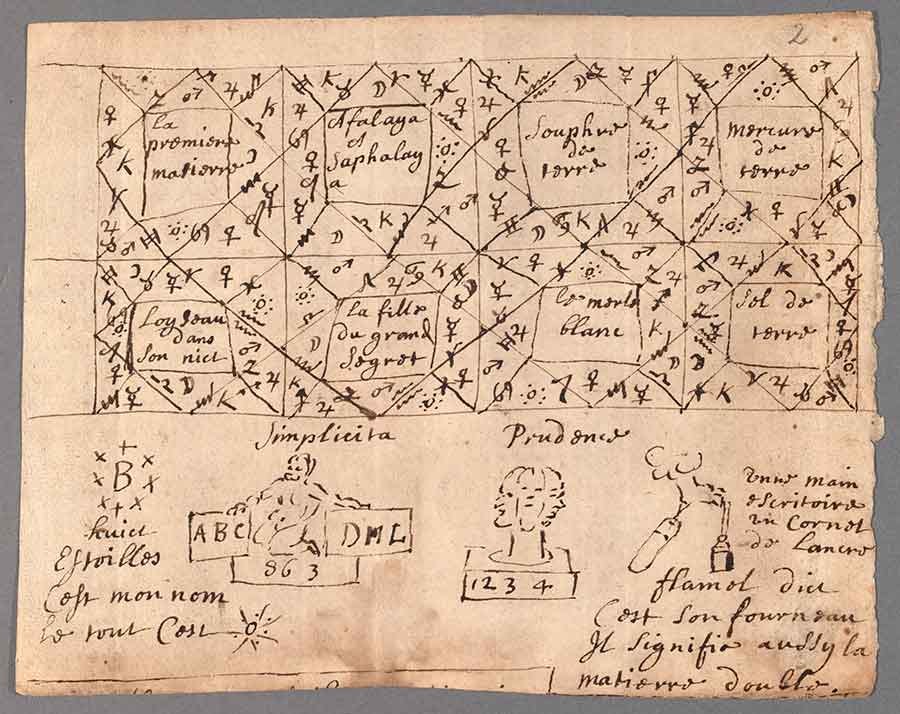 2
la
premiere
matierre
Afalaya
et
Saphalay
a
Souphre
de
terre
mercure
de
terre
Loyseau
dans
son nict
la fille
du grand
Segret
le merle
blanc
Sel de
terre
Simplicita
Prudence
B
huict
Estoilles
Cest mon nom
le tout Cest
ABC
DML
863
1234
unne main
escritoire
un Cornet
de Lancre
flamel dict
Cest son fourneau
Il signifie aussy la
matierre double.